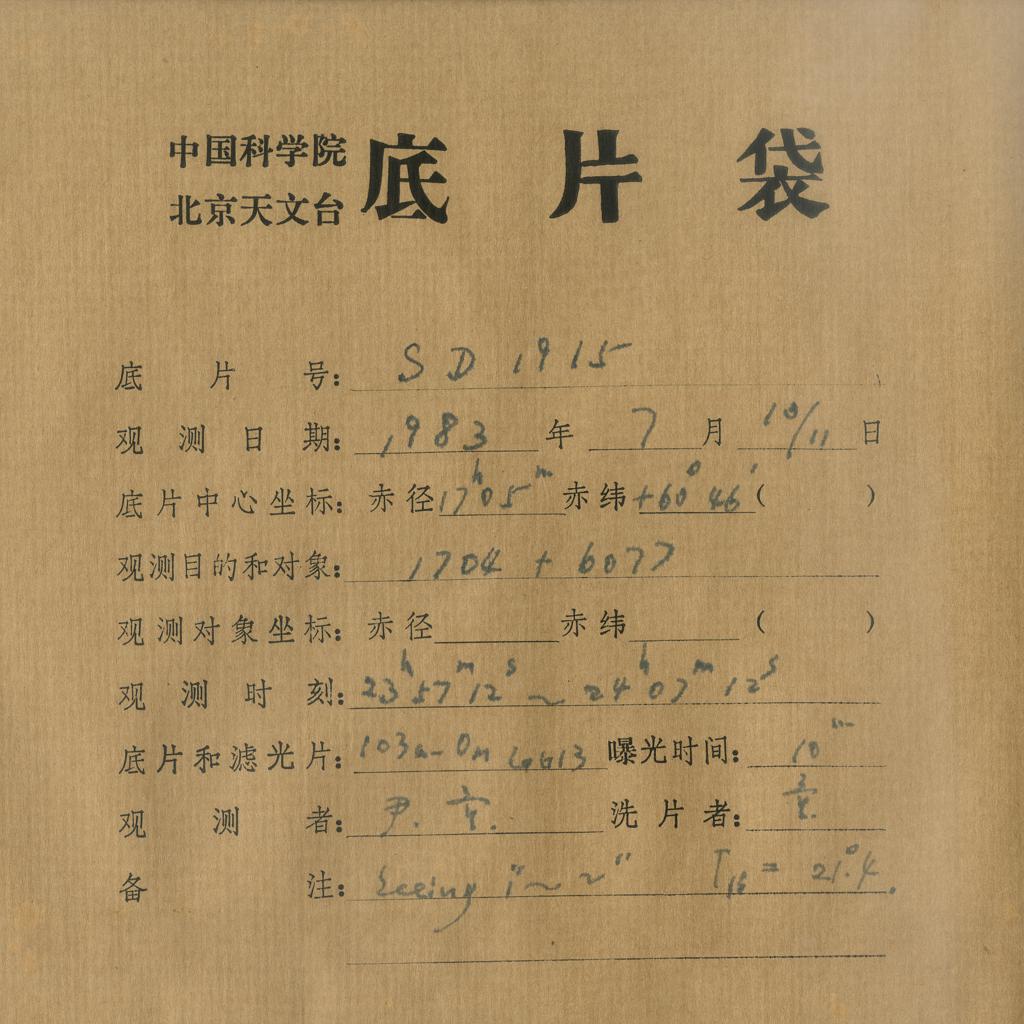 中国科学院
北京天文台
底片袋
底片号: SD 1915
观测日期: 1983 年 7 月 10/11 日
底片中心坐标: 赤径 17ʰ05ᵐ 赤纬 +60°46′ ( )
观测目的和对象: 1704 + 6077
观测对象坐标: 赤径 赤纬 ( )
观测时刻: 23ʰ57ᵐ12ˢ ~ 24ʰ07ᵐ12ˢ
底片和滤光片: 103a-O GG13 曝光时间: 10ᵐ
观测者: 尹. 洗片者:
备注: Seeing 1"~2" T = 21°.4